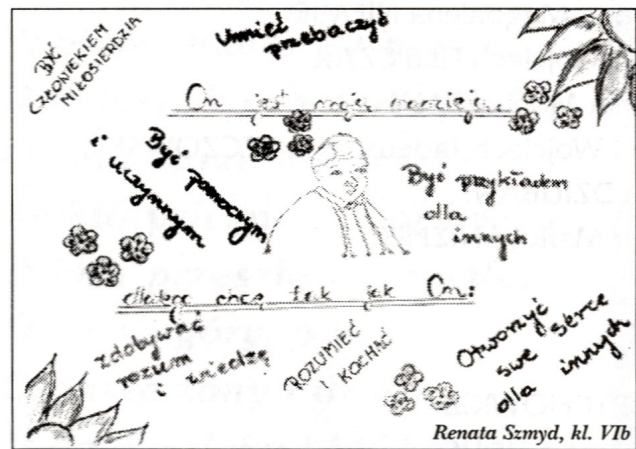 BYĆ
CZŁOWIEKIEM
MIŁOSIERDZIA
Umieć
przebaczyć
On jest moją nadzieją,
Być pomocnym
i uczynnym
Być przykładem
dla
innych
dlatego chcę tak jak On:
zdobywać
rozum
i wiedzę
ROZUMIEĆ
I KOCHAĆ
Otworzyć
swe serce
dla innych
Renata Szmyd, kl. VIb